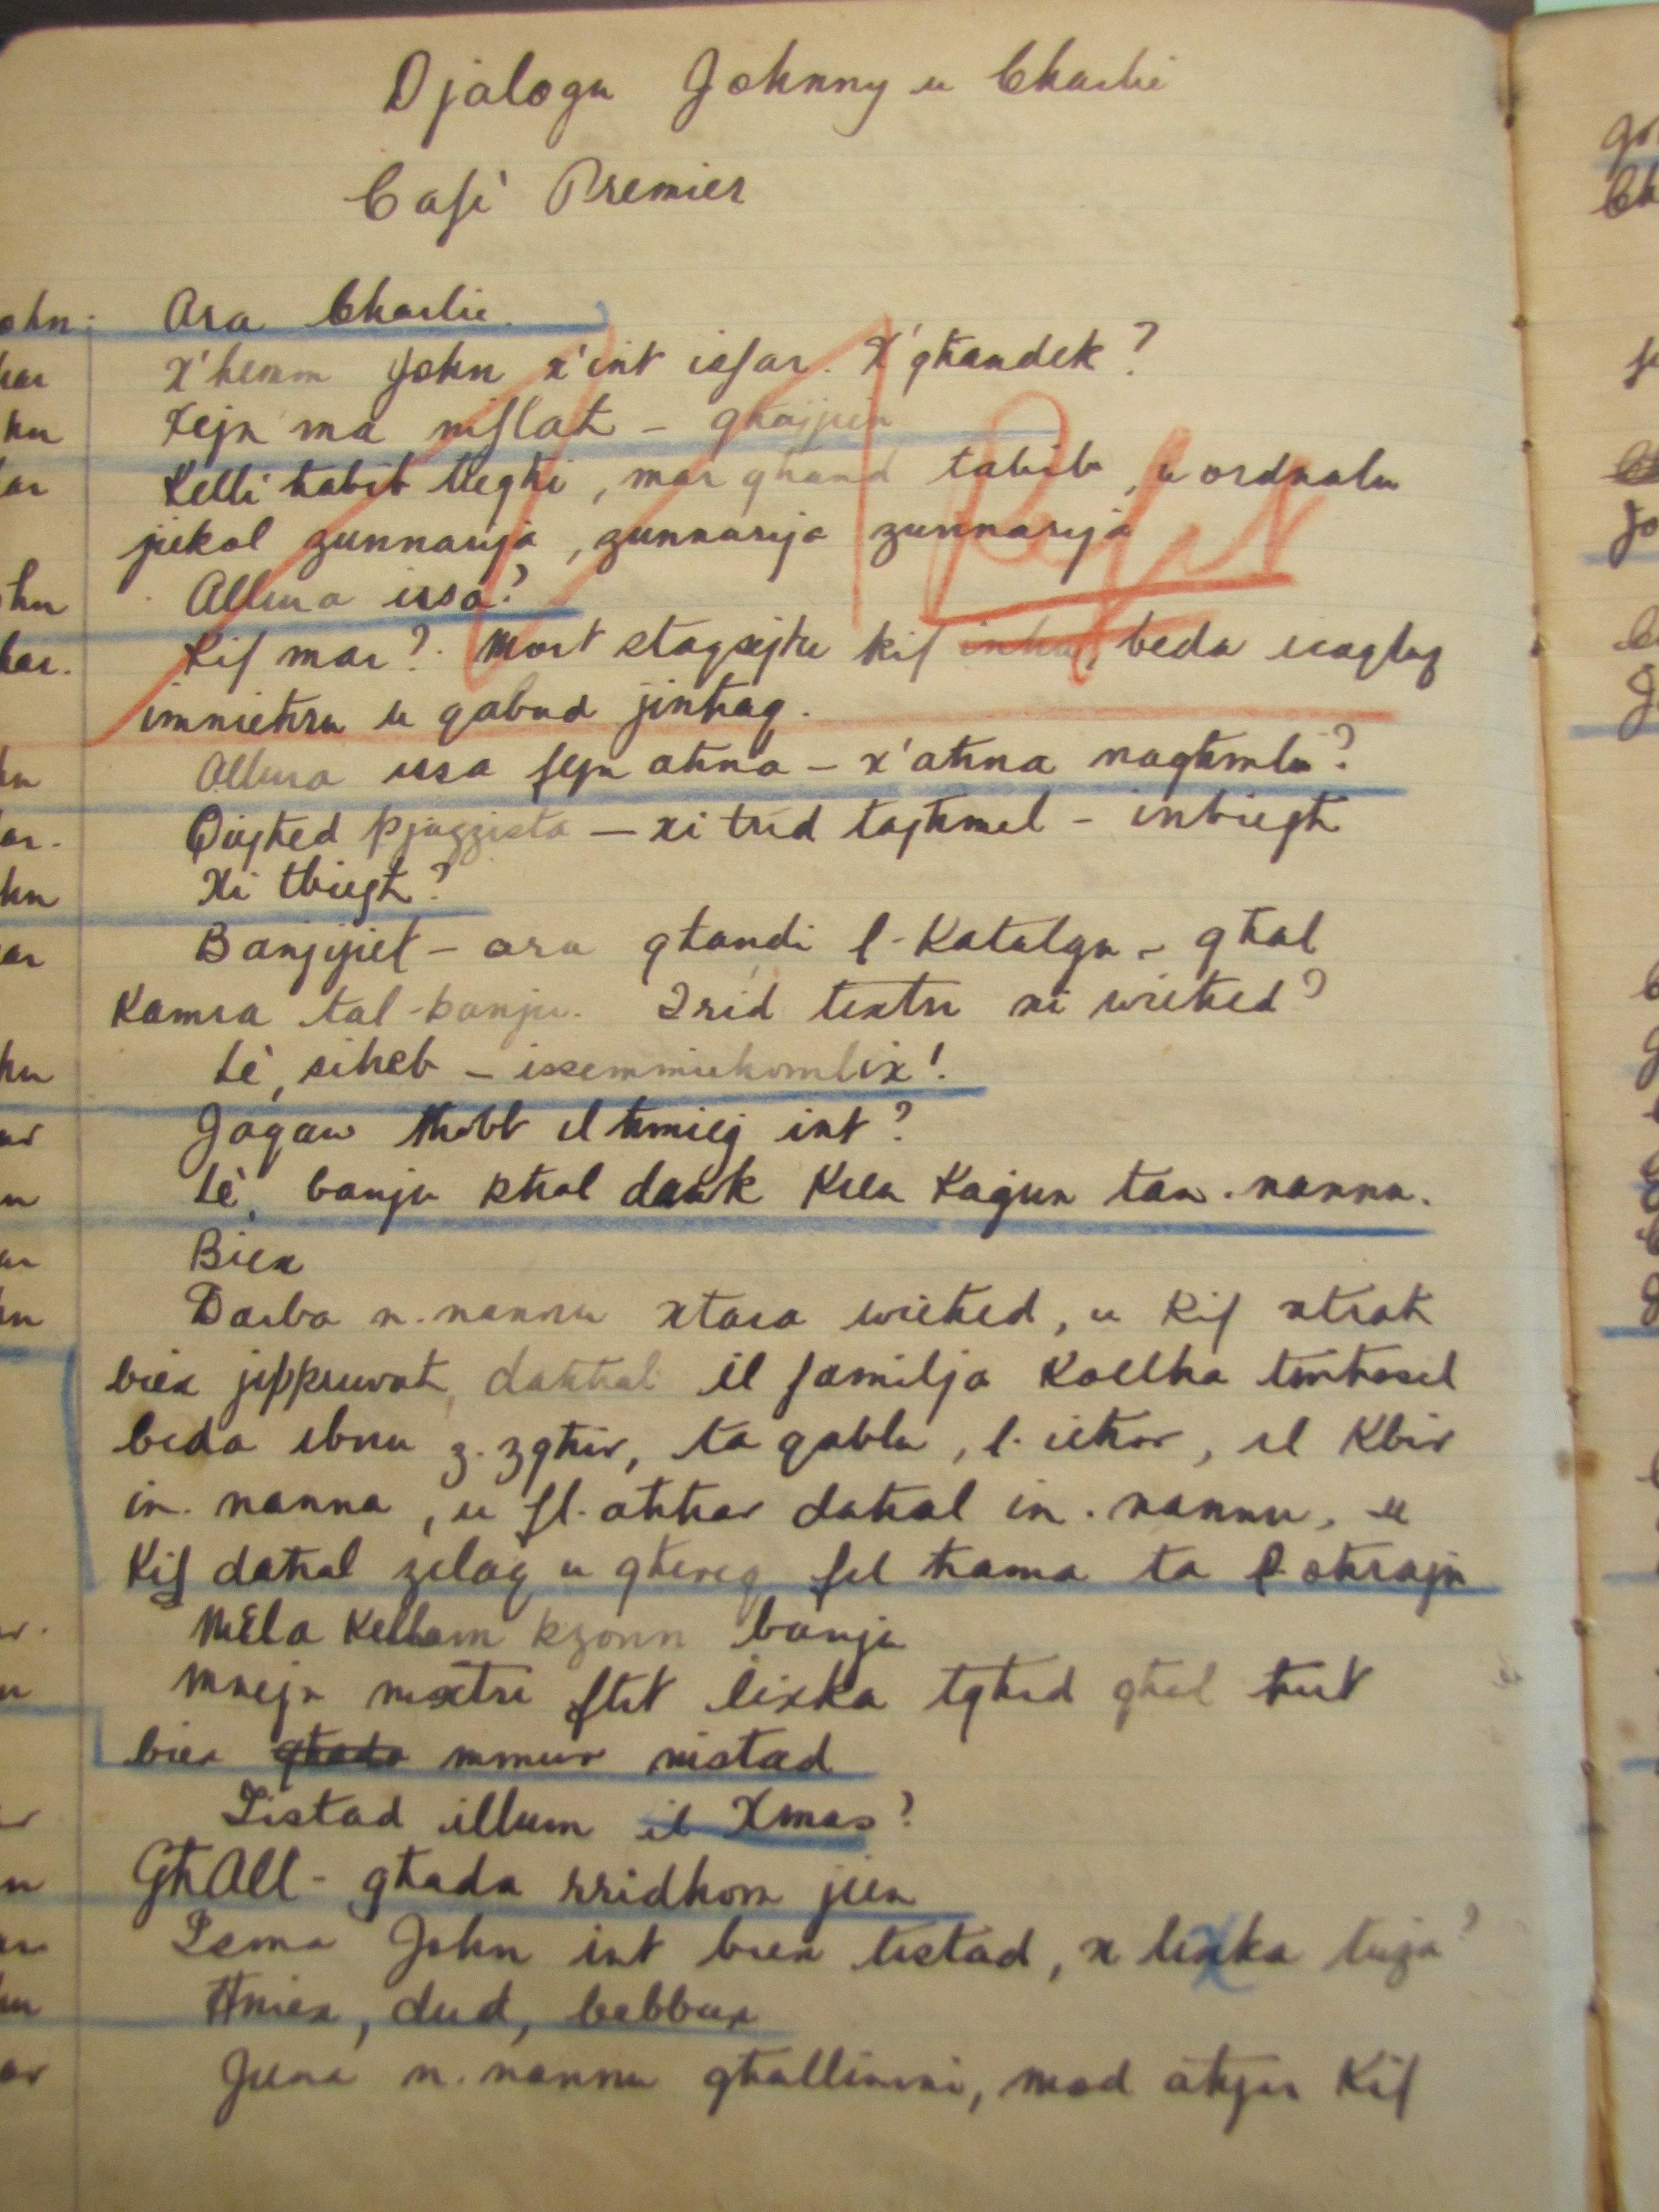 Djalogu Johnny u Charlie
Cafè Premier
ohn: Ara Charlie.
har X'hemm John x'int issar. X'għandek?
hn Xejn ma niflaħ - għajjien
ar Kelli ħabib tiegħi, mar għand tabib, u ordnalu
jiekol zunnarija, zunnarija zunnarija
hn Allura issa?
har. Kif mar? Mort staqsejtu kif beda isaqlaq
imnieħru u qabad jinħaq.
hn Allura issa sejn aħna - x'aħna nagħmlu?
ar. Qiegħed pjazzista - xi trid tagħmel - inbiegħ
hn Xi tbiegħ?
ar Banjijiet - ara għandi l-Katalgu - għal
Kamra tal-banju. Trid tixtri xi wieħed?
hn Lè, siħeb - issemmiehomlix!
ar Jaqaw tħobb il ħmieġ int?
n Lè, banju rħal dawk kien kaġun tan. nannu.
ar Biex
hn Darba n. nannu xtara wieħed, u kif xtrah
biex jippruvah, daħħal il familja kollha tinħasel
beda ibnu z. zgħir, ta qablu, l. ieħor, il kbir
in. nanna, u fl. aħħar daħal in. nannu, u
kif daħal żelaq u għereq fil ħama ta l-oħrajn
r. Mela kellom kzonn banju
n Mnejn nixtri ftit lixka tgħid għal ħut
biex mmur nistad
r Tistad illum il Xmas?
n GħAll - għada rridhom jien
ar Jema John int biex tistad, x lixka tuża?
hn Ħniex, dud, bebbux
ar Jiena n. nannu għallimni, mod aħjar kif